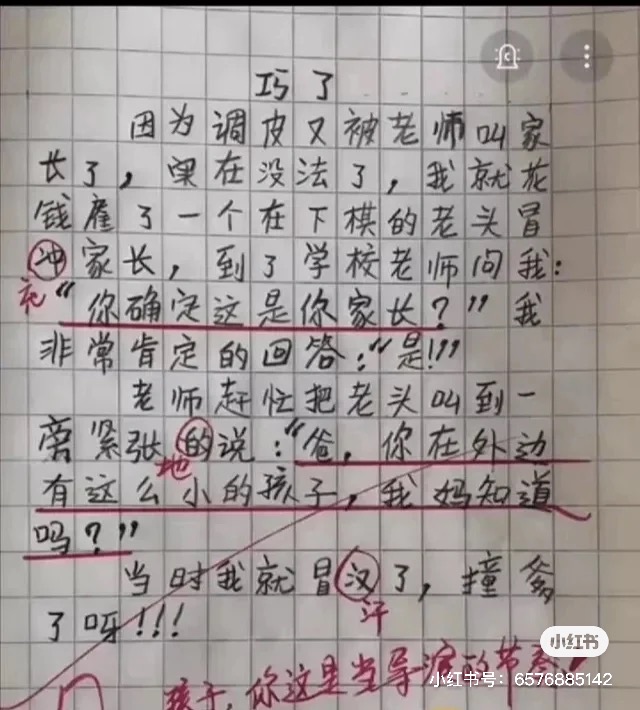 巧了
因为调皮又被老师叫家
长了，实在没法了，我就花
钱雇了一个在下棋的老头冒
冲家长，到了学校老师问我：
充
“你确定这是你家长？”我
非常肯定的回答：“是!!!”
老师赶忙把老头叫到一
旁紧张的说：“爸，你在外边
地
有这么小的孩子，我妈知道
吗？”
当时我就冒汉了，撞爹
汗
了呀!!!
孩子，你这是当导演的节奏！
小红书
小红书号：6576885142